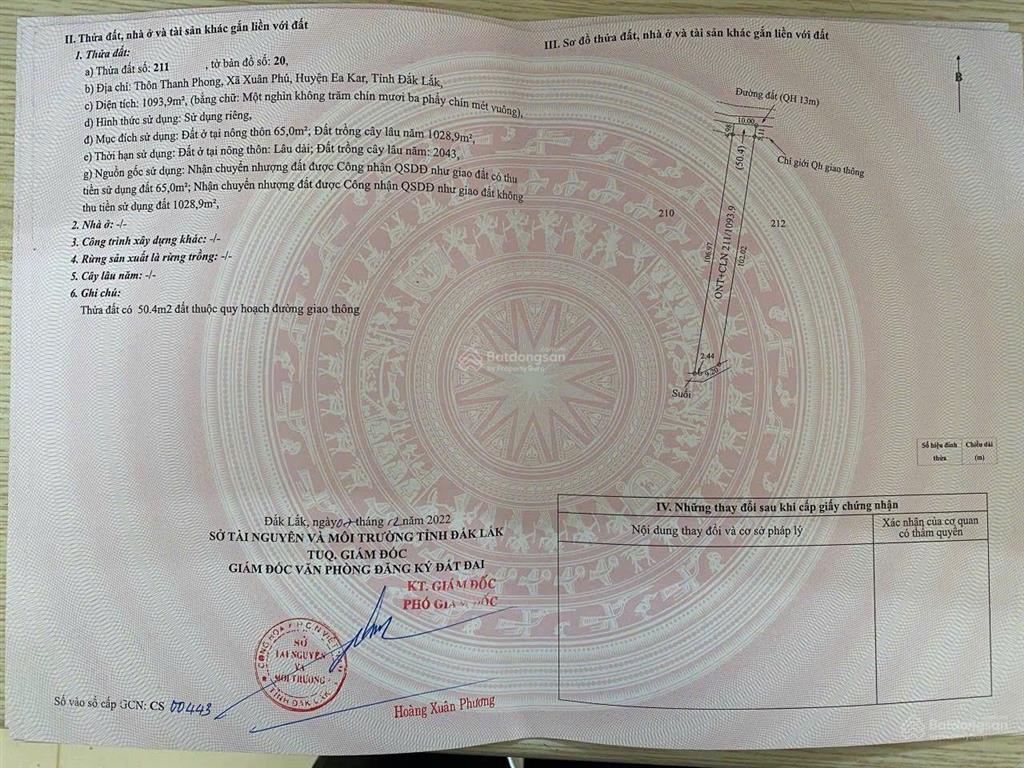 II. Thửa đất, nhà ở và tài sản khác gắn liền với đất
1. Thửa đất:
a) Thửa đất số: 211 , tờ bản đồ số: 20,
b) Địa chỉ: Thôn Thanh Phong, Xã Xuân Phú, Huyện Ea Kar, Tỉnh Đắk Lắk,
c) Diện tích: 1093,9m², (bằng chữ: Một nghìn không trăm chín mươi ba phẩy chín mét vuông),
d) Hình thức sử dụng: Sử dụng riêng,
đ) Mục đích sử dụng: Đất ở tại nông thôn 65,0m²; Đất trồng cây lâu năm 1028,9m²,
e) Thời hạn sử dụng: Đất ở tại nông thôn: Lâu dài; Đất trồng cây lâu năm: 2043,
g) Nguồn gốc sử dụng: Nhận chuyển nhượng đất được Công nhận QSDĐ như giao đất có thu
tiền sử dụng đất 65,0m²; Nhận chuyển nhượng đất được Công nhận QSDĐ như giao đất không
thu tiền sử dụng đất 1028,9m²,
2. Nhà ở: -/-
3. Công trình xây dựng khác: -/-
4. Rừng sản xuất là rừng trồng: -/-
5. Cây lâu năm: -/-
6. Ghi chú:
Thửa đất có 50.4m2 đất thuộc quy hoạch đường giao thông
Đắk Lắk, ngày 07 tháng 12 năm 2022
SỞ TÀI NGUYÊN VÀ MÔI TRƯỜNG TỈNH ĐẮK LẮK
TUQ. GIÁM ĐỐC
GIÁM ĐỐC VĂN PHÒNG ĐĂNG KÝ ĐẤT ĐAI
KT. GIÁM ĐỐC
PHÓ GIÁM ĐỐC
SỞ
TÀI NGUYÊN
VÀ
MÔI TRƯỜNG
TỈNH ĐẮK LẮK
Hoàng Xuân Phương
Số vào sổ cấp GCN: CS 00443
III. Sơ đồ thửa đất, nhà ở và tài sản khác gắn liền với đất
B
Đường đất (QH 13m)
10.00
5.11
(50.4)
Chỉ giới Qh giao thông
210
212
106.97
ONT+CLN 211/1093.9
102.02
2.44
9.20
Suối
Số hiệu đỉnh thửa
Chiều dài (m)
IV. Những thay đổi sau khi cấp giấy chứng nhận
Nội dung thay đổi và cơ sở pháp lý
Xác nhận của cơ quan
có thẩm quyền
Batdongsan
by PropertyGuru
Batdongsan